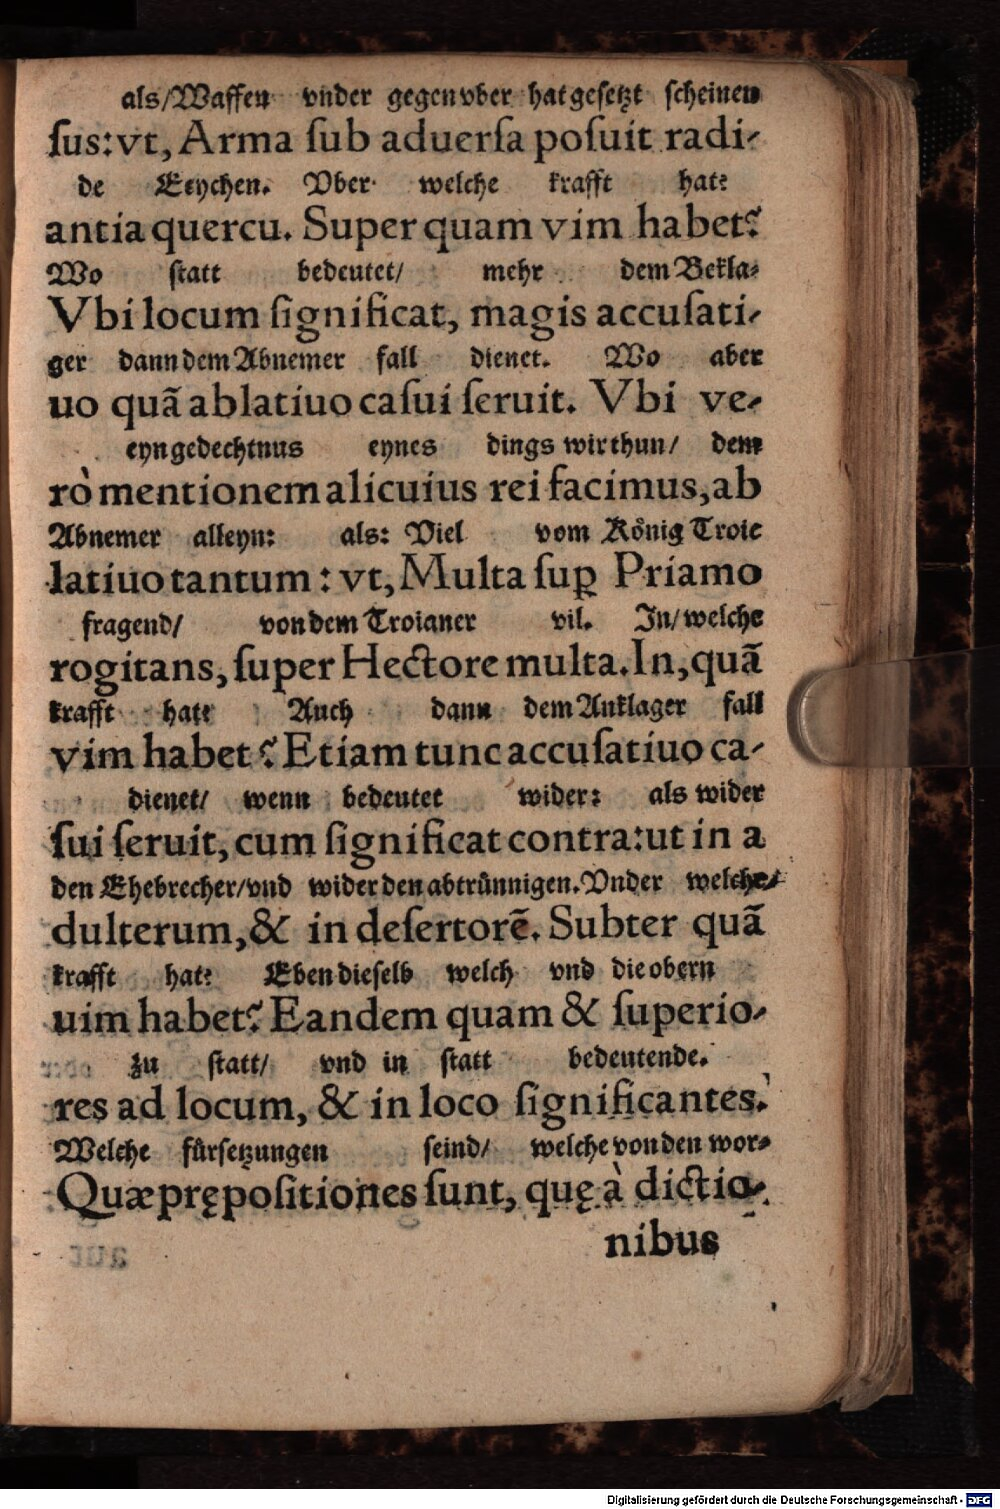 als/Waffen vnder gegenvber hat gesetzt scheinen
ſus: vt, Arma ſub aduerſa poſuit radi-
de Eeychen. Vber welche krafft hat?
antia quercu. Super quam vim habet?
Wo statt bedeutet/ mehr dem Bekla-
Vbi locum ſignificat, magis accuſati-
ger dann dem Abnemer fall dienet. Wo aber
uo quã ablatiuo caſui ſeruit. Vbi ve-
eyn gedechtnus eynes dings wir thun/ dem
rò mentionem alicuius rei facimus, ab
Abnemer alleyn: als: Viel vom König Troie
latiuo tantum: vt, Multa ſuꝑ Priamo
fragend/ von dem Troianer vil. In/ welche
rogitans, ſuper Hectore multa. In, quã
krafft hat? Auch dann dem Anklager fall
vim habet? Etiam tunc accuſatiuo ca-
dienet/ wenn bedeutet wider: als wider
ſui ſeruit, cum ſignificat contra: ut in a
den Ehebrecher/vnd wider den abtrünnigen. Vnder welche/
dulterum, & in deſertorẽ. Subter quã
krafft hat? Eben dieselb welch vnd die obern
uim habet? Eandem quam & ſuperio-
zu statt/ vnd in statt bedeutende.
res ad locum, & in loco ſignificantes.
Welche fürsetzungen seind/ welche von den wor-
Quæ prępoſitiones ſunt, quę à dictio-
nibus
Digitalisierung gefördert durch die Deutsche Forschungsgemeinschaft - DFG